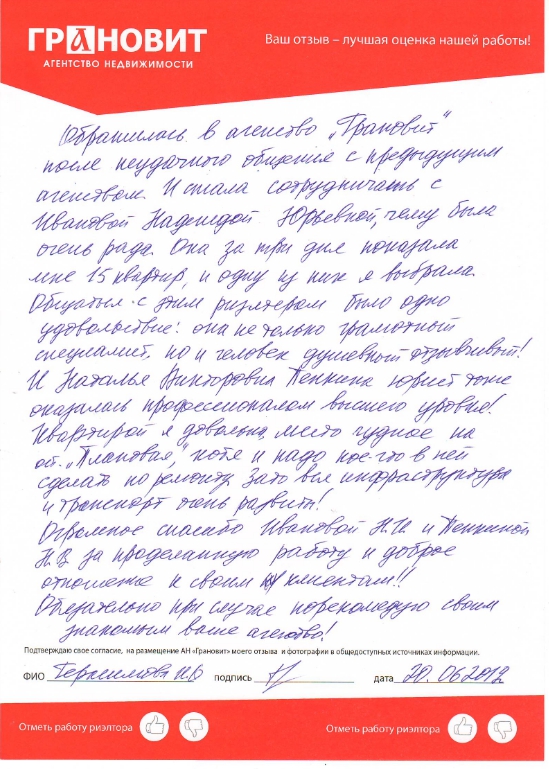 ГРАНОВИТ
АГЕНТСТВО НЕДВИЖИМОСТИ
Ваш отзыв – лучшая оценка нашей работы!
Обратилась в агенство „Грановит“
после неудачного общения с предыдущим
агенством. И стала сотрудничать с
Ивановой Надеждой Юрьевной, чему была
очень рада. Она за три дня показала
мне 15 квартир, и одну из них я выбрала.
Общаться с этим риэлтером было одно
удовольствие: она не только грамотный
специалист, но и человек душевный отзывчивый!
И Наталья Викторовна Пенкина юрист тоже
оказалась профессионалом высшего уровня!
Квартирой я довольна, место чудное на
ост. „Плановая“, хотя и надо кое-что в ней
сделать по ремонту. Зато вся инфраструктура
и транспорт очень развиты!
Огромное спасибо Ивановой Н.Ю. и Пенкиной
Н.В. за проделанную работу и доброе
отношение к своим клиентам!!
Обязательно при случае порекомедую своим
знакомым ваше агенство!
Подтверждаю свое согласие, на размещение АН «Грановит» моего отзыва и фотографии в общедоступных источниках информации.
ФИО Герасимова подпись дата 20.06.2012
Отметь работу риэлтора Отметь работу риэлтора